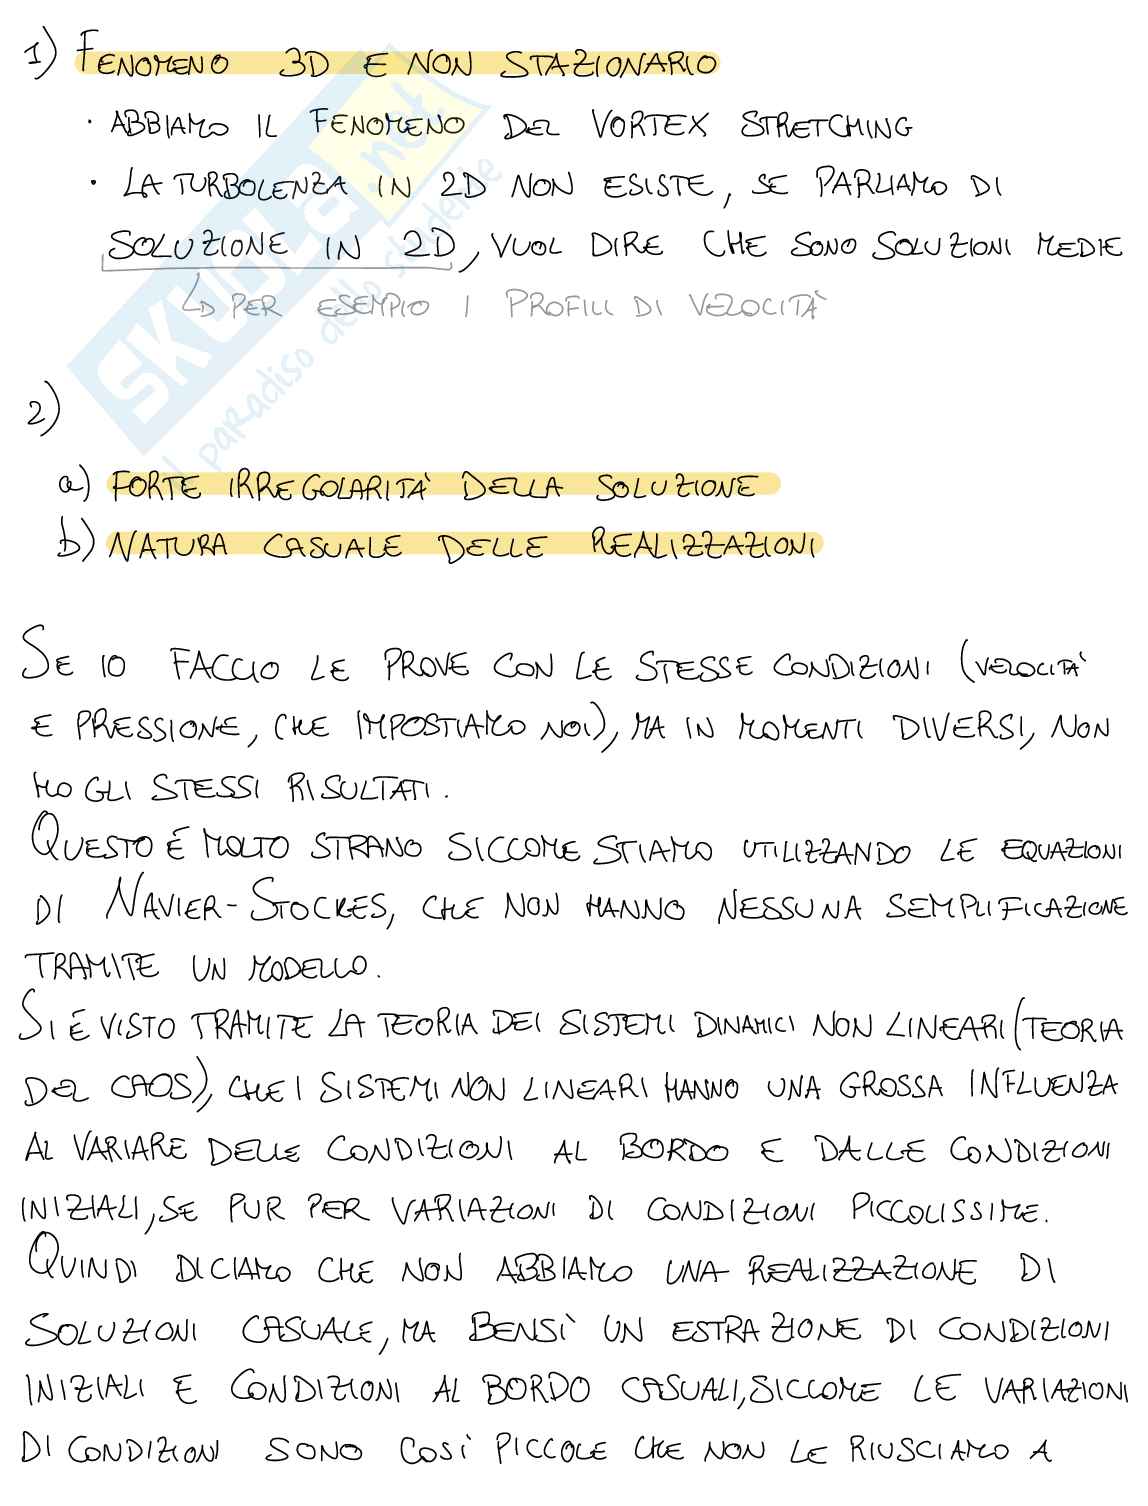 1) FENOMENO 3D E NON STAZIONARIO
· ABBIAMO IL FENOMENO DEL VORTEX STRETCHING
· LA TURBOLENZA IN 2D NON ESISTE, SE PARLIAMO DI
SOLUZIONE IN 2D, VUOL DIRE CHE SONO SOLUZIONI MEDIE
↳ PER ESEMPIO I PROFILI DI VELOCITÀ
SKUOLA.net
il paradiso dello studente
2)
a) FORTE IRREGOLARITÀ DELLA SOLUZIONE
b) NATURA CASUALE DELLE REALIZZAZIONI
SE IO FACCIO LE PROVE CON LE STESSE CONDIZIONI (VELOCITÀ
E PRESSIONE, CHE IMPOSTIAMO NOI), MA IN MOMENTI DIVERSI, NON
HO GLI STESSI RISULTATI.
QUESTO É MOLTO STRANO SICCOME STIAMO UTILIZZANDO LE EQUAZIONI
DI NAVIER-STOCKES, CHE NON HANNO NESSUNA SEMPLIFICAZIONE
TRAMITE UN MODELLO.
SI É VISTO TRAMITE LA TEORIA DEI SISTEMI DINAMICI NON LINEARI (TEORIA
DEL CAOS), CHE I SISTEMI NON LINEARI HANNO UNA GROSSA INFLUENZA
AL VARIARE DELLE CONDIZIONI AL BORDO E DALLE CONDIZIONI
INIZIALI, SE PUR PER VARIAZIONI DI CONDIZIONI PICCOLISSIME.
QUINDI DICIAMO CHE NON ABBIAMO UNA REALIZZAZIONE DI
SOLUZIONI CASUALE, MA BENSÌ UN ESTRAZIONE DI CONDIZIONI
INIZIALI E CONDIZIONI AL BORDO CASUALI, SICCOME LE VARIAZIONI
DI CONDIZIONI SONO COSÌ PICCOLE CHE NON LE RIUSCIAMO A